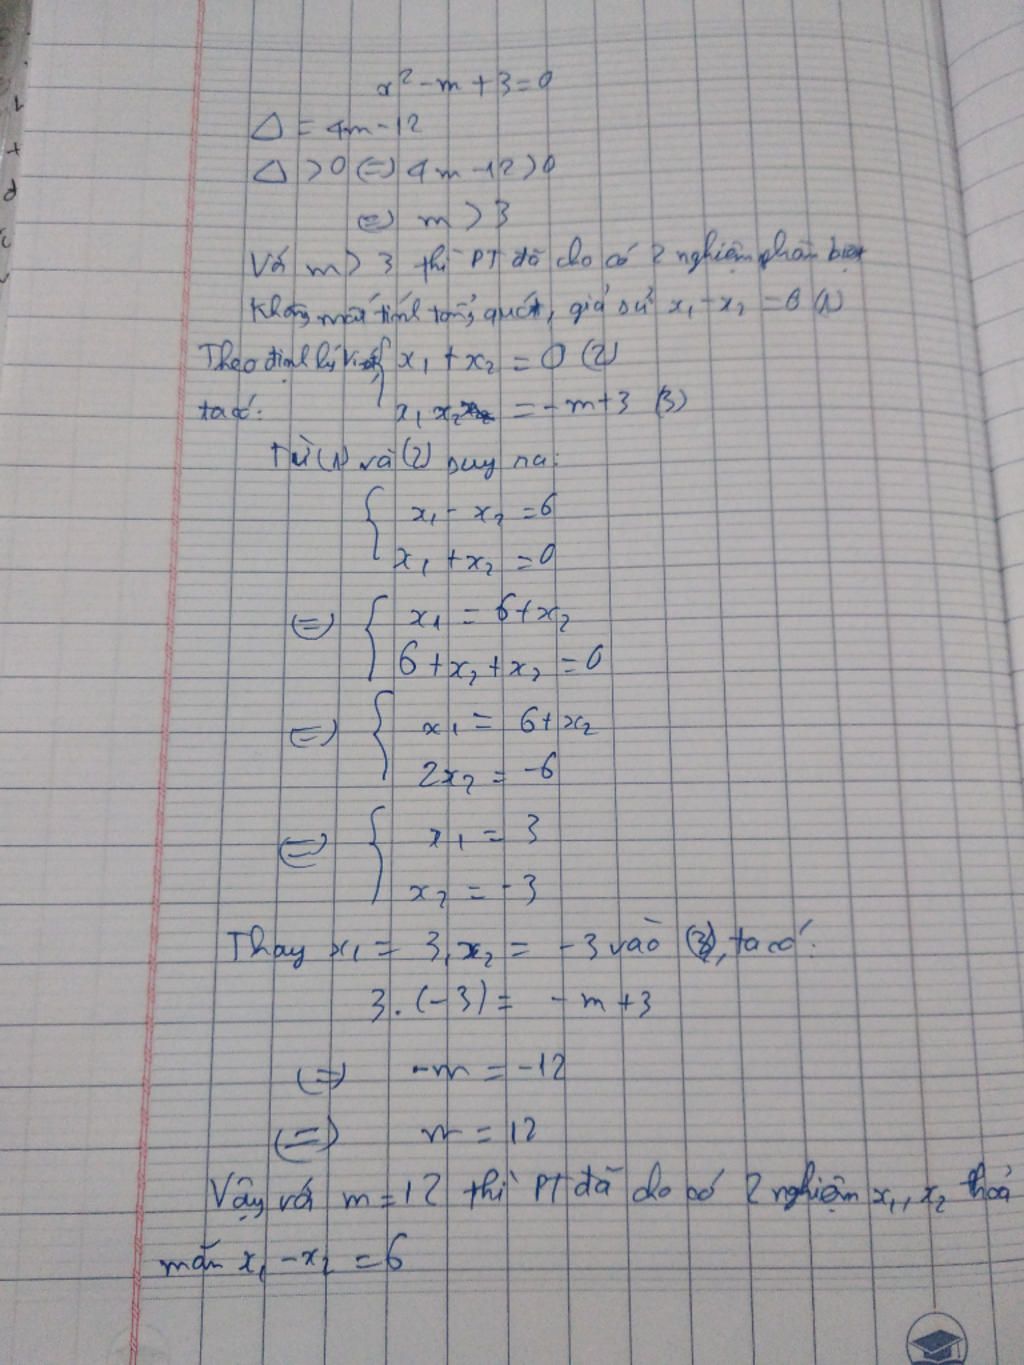 x² - m + 3 = 0
Δ = 4m - 12
Δ > 0 (=) 4m - 12 > 0
(=) m > 3
Với m > 3 thì PT đã cho có 2 nghiệm phân biệt
Không mất tính tổng quát, giả sử x₁ - x₂ = 6 (1)
Theo định lý Viét { x₁ + x₂ = 0 (2)
ta có: x₁ x₂ = -m + 3 (3)
Từ (1) và (2) suy ra:
{ x₁ - x₂ = 6
x₁ + x₂ = 0
(=) { x₁ = 6 + x₂
6 + x₂ + x₂ = 0
(=) { x₁ = 6 + x₂
2x₂ = -6
(=) { x₁ = 3
x₂ = -3
Thay x₁ = 3, x₂ = -3 vào (3), ta có:
3. (-3) = -m + 3
(=) -m = -12
(=) m = 12
Vậy với m = 12 thì PT đã cho có 2 nghiệm x₁, x₂ thoả
mãn x₁ - x₂ = 6